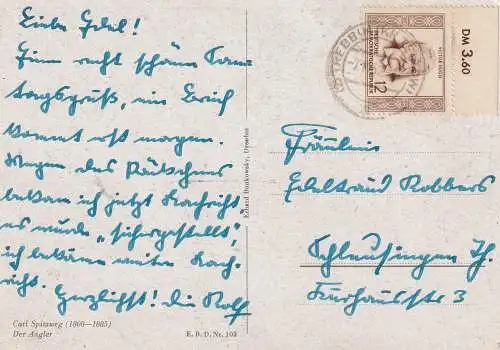 Liebe Edel!
Einen recht schönen Sonn-
tagsgruß, ein Brief
kommt erst morgen.
Wegen des Päckchens
bekam ich jetzt Nachricht,
es wurde „sichergestellt",
ich bekäme weitere Nach-
richt. Herzlichst! Dein Rolf
Carl Spitzweg (1808—1885)
Der Angler
E. B. D. Nr. 103
Eduard Bunkowsky, Dresden
DEUTSCHE
DEMOKRATISCHE REPUBLIK
12
DM 3.60
TREBBUS
Fräulein
Edeltraud Robbers
Schleusingen Th.
Kurhausstr 3